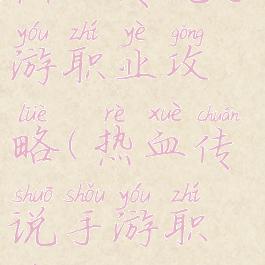 yóu zhí yè gōng
游职业攻
lüè rè xuè chuán
略(热血传
shuō shǒu yóu zhí
说手游职